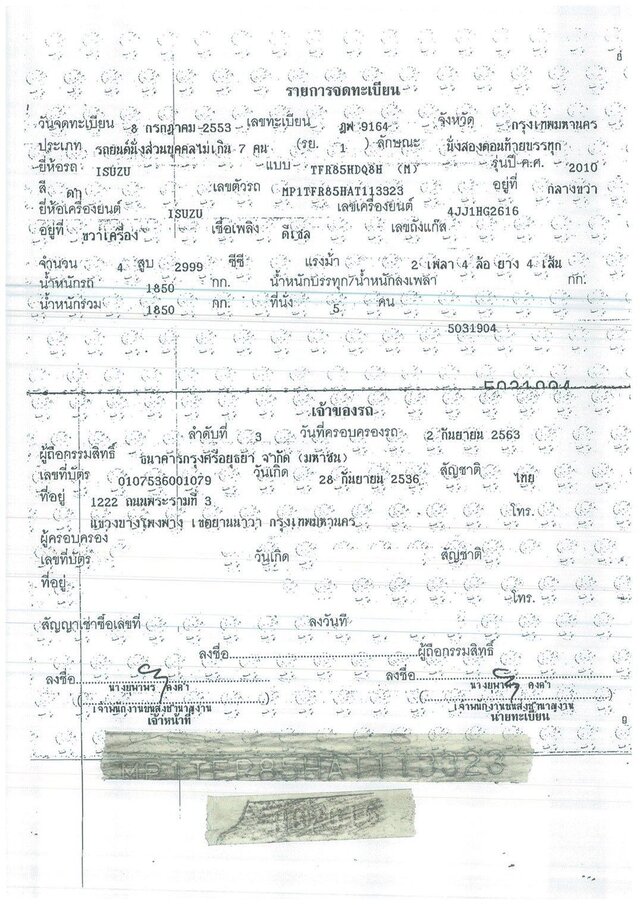 รายการจดทะเบียน
วันจดทะเบียน 8 กรกฎาคม 2553 เลขทะเบียน ฎพ 9164 จังหวัด กรุงเทพมหานคร
ประเภท รถยนต์นั่งส่วนบุคคลไม่เกิน 7 คน (รย. 1 ) ลักษณะ นั่งสองตอนท้ายบรรทุก
ยี่ห้อรถ ISUZU แบบ TFR85HDQ8H (M) รุ่นปี ค.ศ. 2010
สี ดำ เลขตัวรถ MP1TFR85HAT113323 อยู่ที่ กลางขวา
ยี่ห้อเครื่องยนต์ ISUZU เลขเครื่องยนต์ 4JJ1HG2616
อยู่ที่ ขวาเครื่อง เชื้อเพลิง ดีเซล เลขถังแก๊ส
จำนวน 4 สูบ 2999 ซีซี แรงม้า 2 เพลา 4 ล้อ ยาง 4 เส้น
น้ำหนักรถ 1850 กก. น้ำหนักบรรทุก/น้ำหนักลงเพลา กก.
น้ำหนักรวม 1850 กก. ที่นั่ง 5 คน
5031904
เจ้าของรถ
ลำดับที่ 3 วันที่ครอบครองรถ 2 กันยายน 2563
ผู้ถือกรรมสิทธิ์ ธนาคารกรุงศรีอยุธยา จำกัด (มหาชน)
เลขที่บัตร 0107536001079 วันเกิด 28 กันยายน 2536 สัญชาติ ไทย
ที่อยู่ 1222 ถนนพระรามที่ 3 โทร.
แขวงบางโพงพาง เขตยานนาวา กรุงเทพมหานคร
ผู้ครอบครอง
เลขที่บัตร วันเกิด สัญชาติ
ที่อยู่
โทร.
สัญญาเช่าซื้อเลขที่ ลงวันที่
ลงชื่อ ผู้ถือกรรมสิทธิ์
ลงชื่อ ลงชื่อ
เจ้าพนักงานขนส่งชำนาญงาน เจ้าพนักงานขนส่งชำนาญงาน
เจ้าหน้าที่ นายทะเบียน
MP1TFR85HAT113323